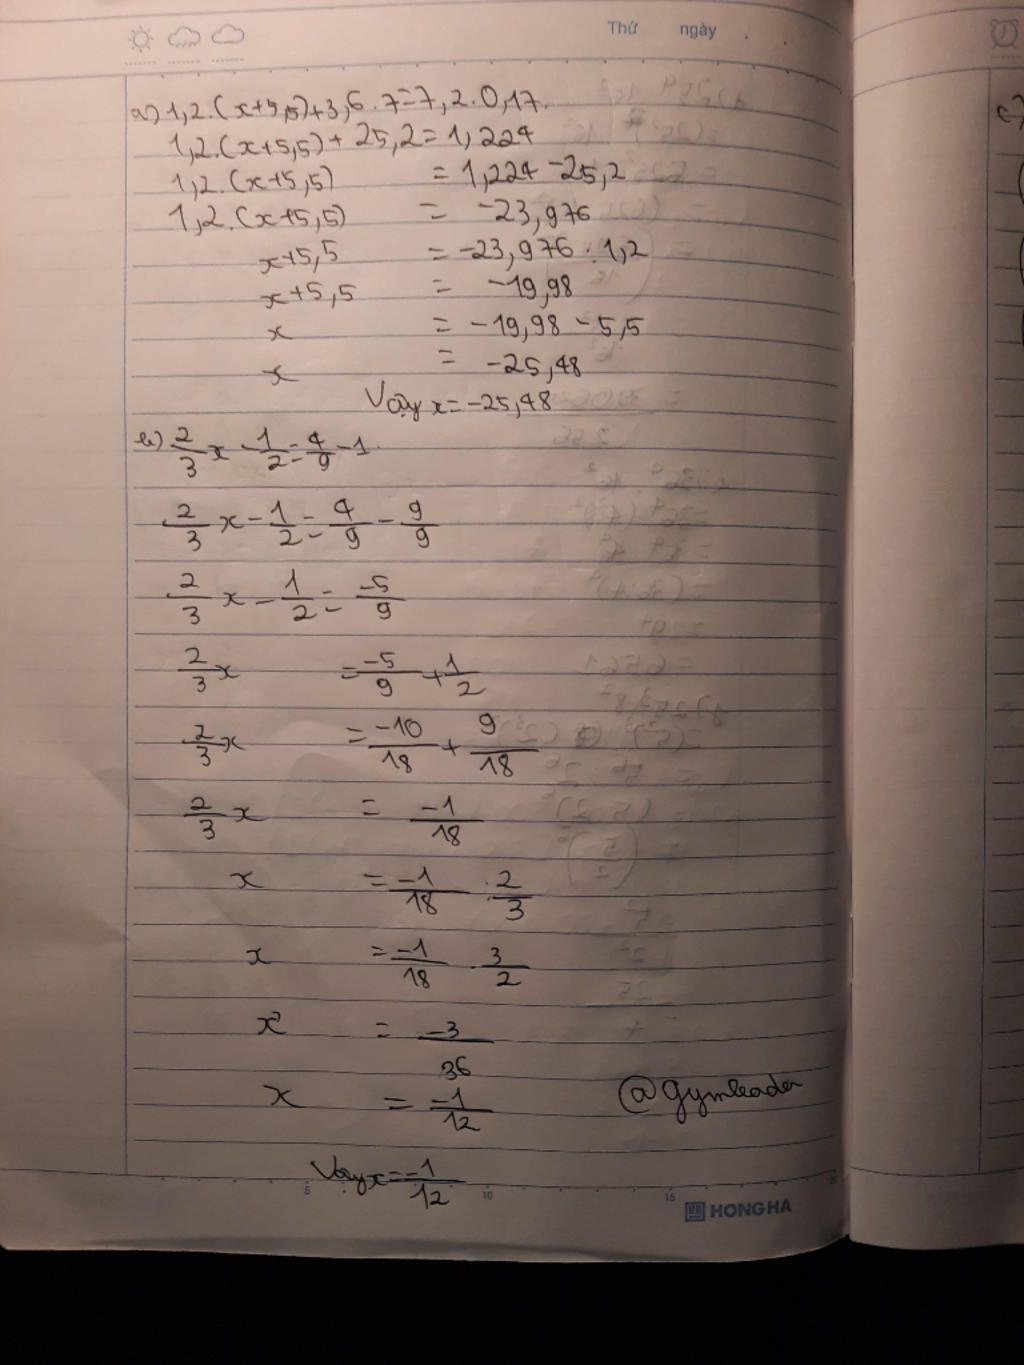 Thứ ngày
a) 1,2.(x+5,5)+3,6.7=7,2.0,17.
1,2.(x+5,5)+25,2=1,224
1,2.(x+5,5) = 1,224-25,2
1,2.(x+5,5) = -23,976
x+5,5 = -23,976:1,2
x+5,5 = -19,98
x = -19,98-5,5
x = -25,48
Vậy x=-25,48
b) 2/3 x - 1/2 = 4/9 - 1
2/3 x - 1/2 = 4/9 - 9/9
2/3 x - 1/2 = -5/9
2/3 x = -5/9 + 1/2
2/3 x = -10/18 + 9/18
2/3 x = -1/18
x = -1/18 : 2/3
x = -1/18 . 3/2
x = -3/36
x = -1/12
@gymleader
Vậy x = -1/12
5 10 15
HONG HA